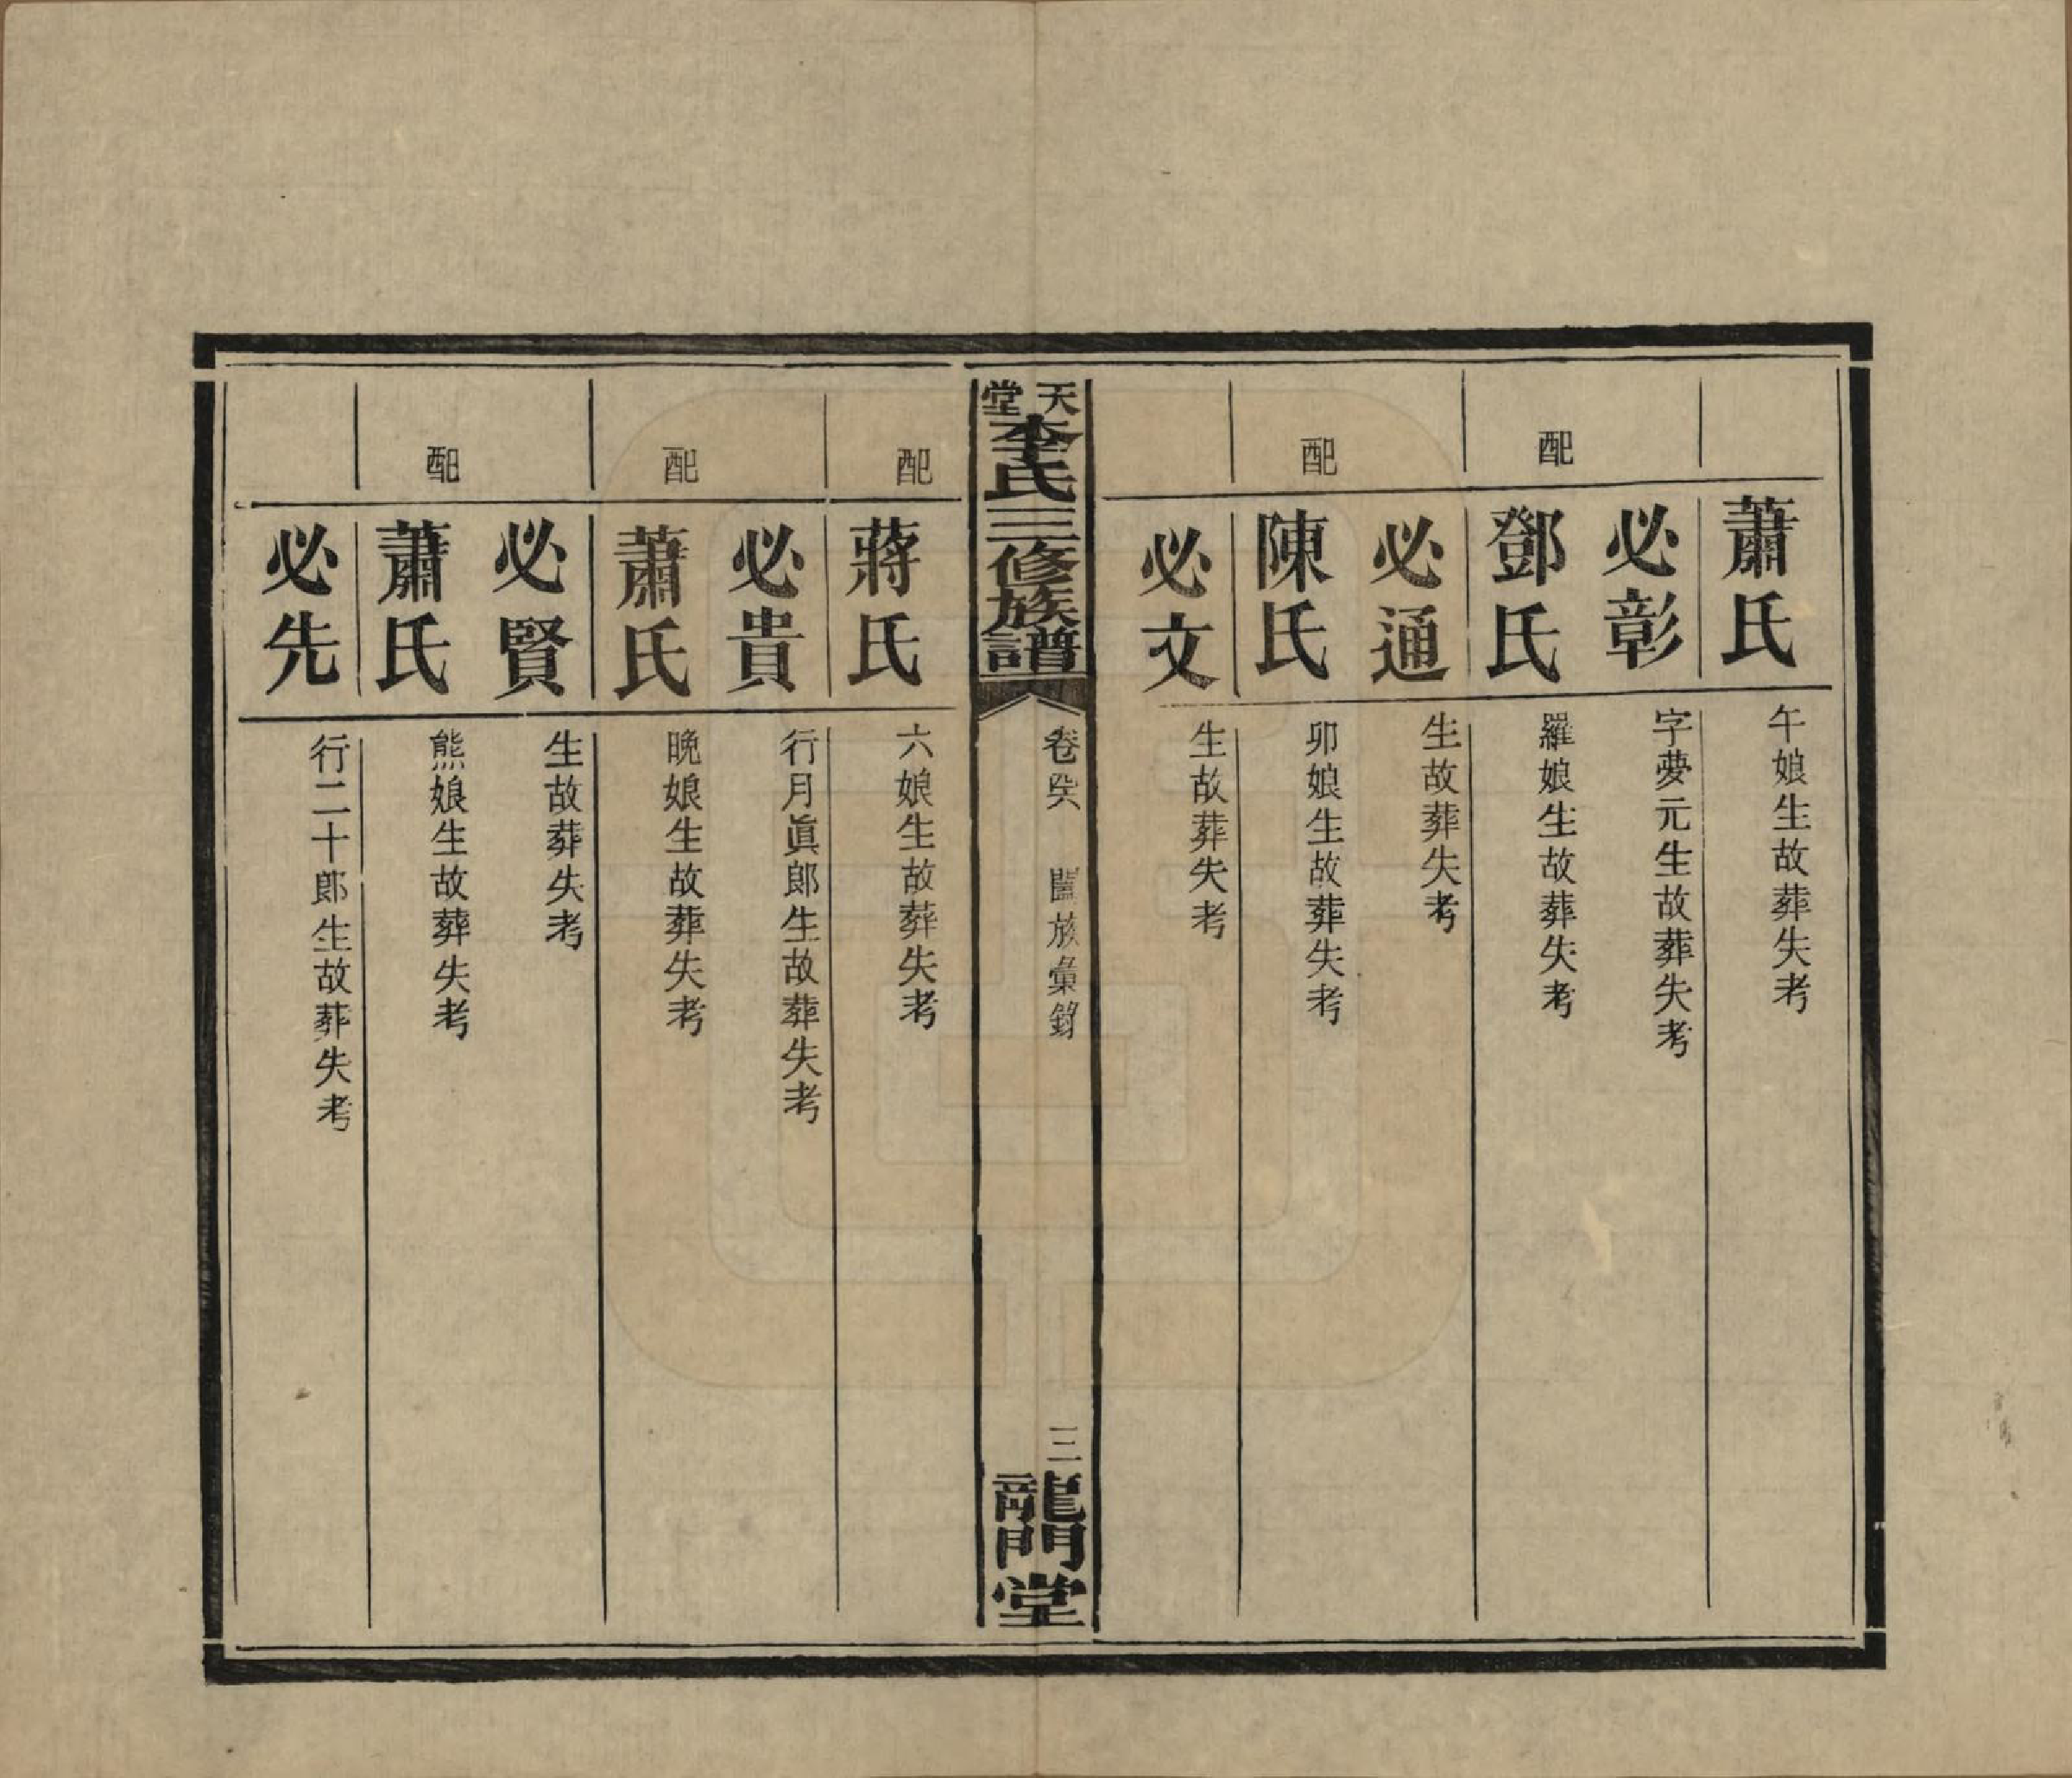 蕭氏 午娘生故葬失考
必彰 字夢元生故葬失考
配 鄧氏 羅娘生故葬失考
必通 生故葬失考
配 陳氏 卯娘生故葬失考
必文 生故葬失考
天堂李氏三修族譜 卷 闔族彙 三 龍門堂
配 蔣氏 六娘生故葬失考
必貴 行月眞郎生故葬失考
配 蕭氏 晚娘生故葬失考
必賢 生故葬失考
配 蕭氏 熊娘生故葬失考
必先 行二十郎生故葬失考